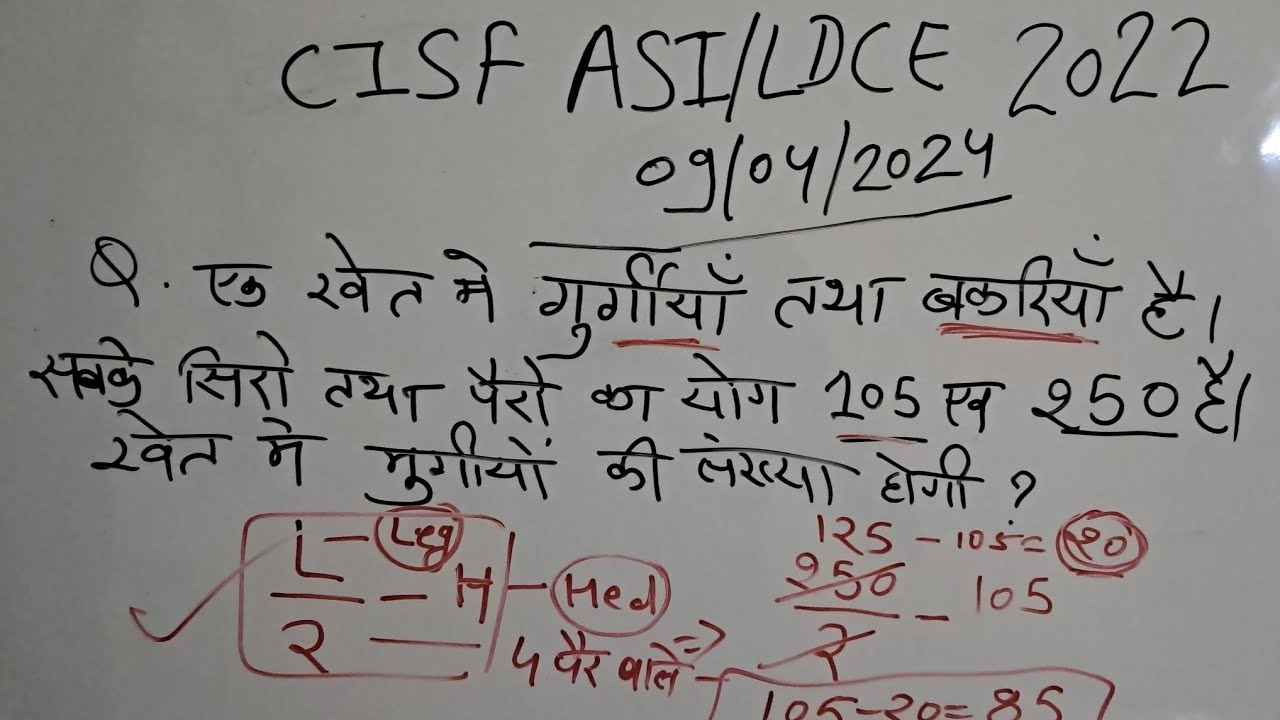 CISF ASI/LDCE 2022
09/04/2024
Q. एक खेत मे गुर्गीयाँ तथा बकरियाँ है।
सबके सिरो तथा पैरो का योग 105 एव 250 है।
खेत मे मुर्गीयों की संख्या होगी ?
L — Leg
— — H — Hed
2
4 पैर वाले ⇒
125 - 105 = 20
250
— - 105
2
105-20=85